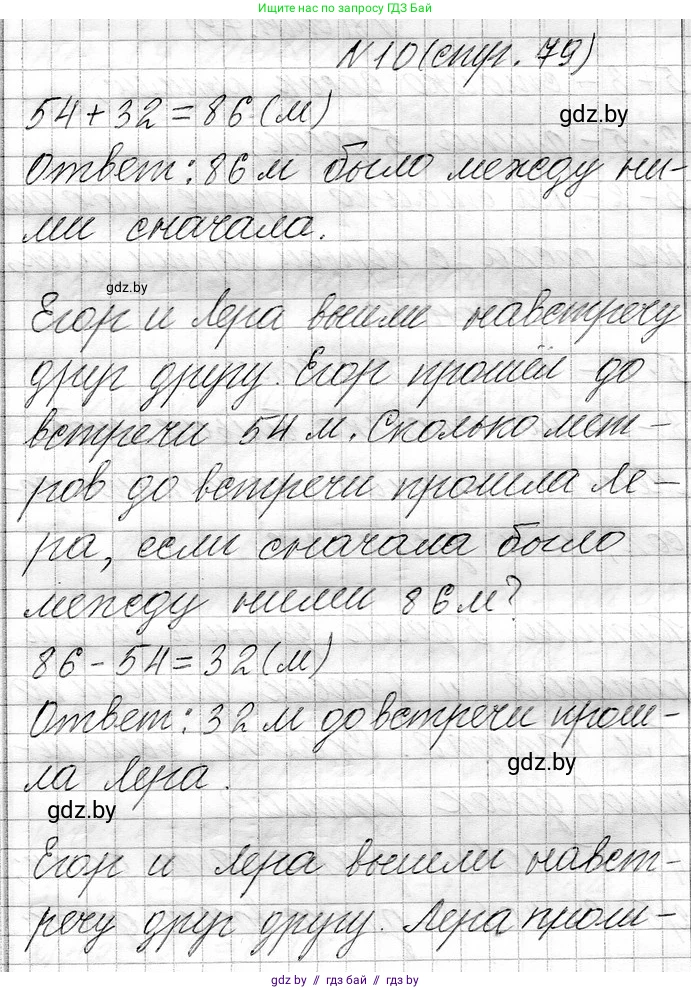 Ищите нас по запросу ГДЗ Бай
N10(стр. 79)
54+32=86(м)
gdz.by
Ответ: 86 м было между ни-
ми сначала.
gdz.by
Егор и Лера вышли навстречу
друг другу. Егор прошёл до
встречи 54 м. Сколько мет-
ров до встречи прошла Ле-
ра, если сначала было
между ними 86 м?
86-54=32(м)
Ответ: 32 м до встречи прош-
ла Лера.
gdz.by
gdz.by
Егор и Лера вышли навст-
речу друг другу. Лера прош-
gdz by // гдз бай // gdz by